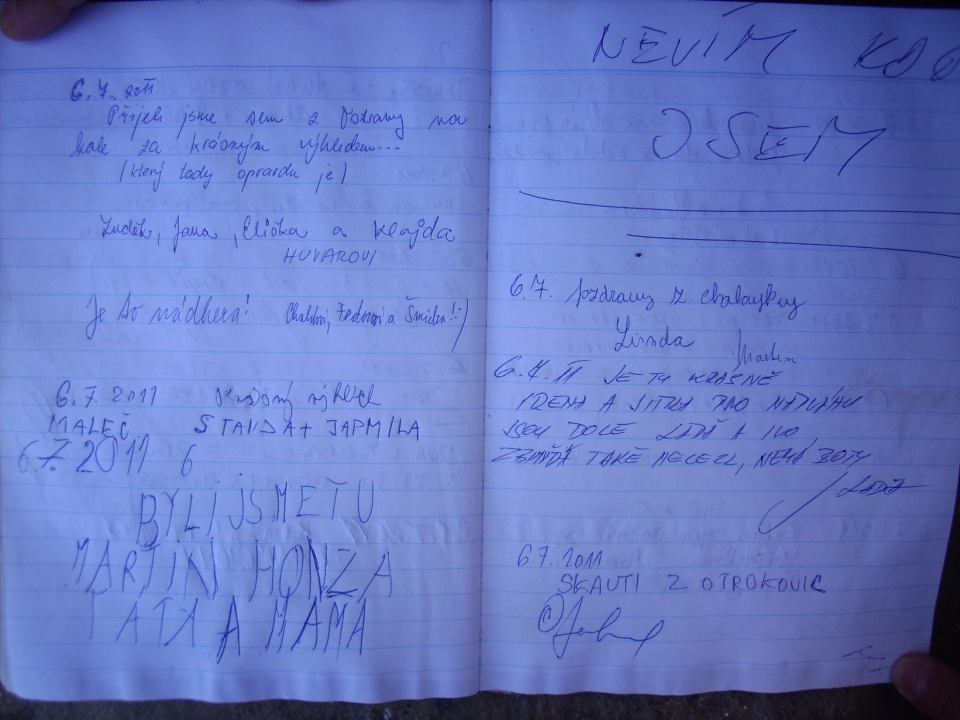 6.7. 2011
Přijeli jsme sem z Ostravy na
kole za krásným výhledem...
(který tady opravdu je)
Luděk, Jana, Eliška a
HUVAROVI
Je to nádhera!
6.7. 2011 Krásný výhled
MALEČ STANDA + JARMILA
6.7. 2011 6
BYLI JSME TU
MARTIN HONZA
TATA A MAMA
NEVÍM KDO
JSEM
6.7. pozdravy z
Linda Martin
6.7. 11 JE TU KRÁSNĚ
IRENA A JITKA
JSOU DOLE LÁĎA A IVO,
TAKÉ NELEZL, NEMÁ BOTY
6.7. 2011
SKAUTI Z OTROKOVIC
©